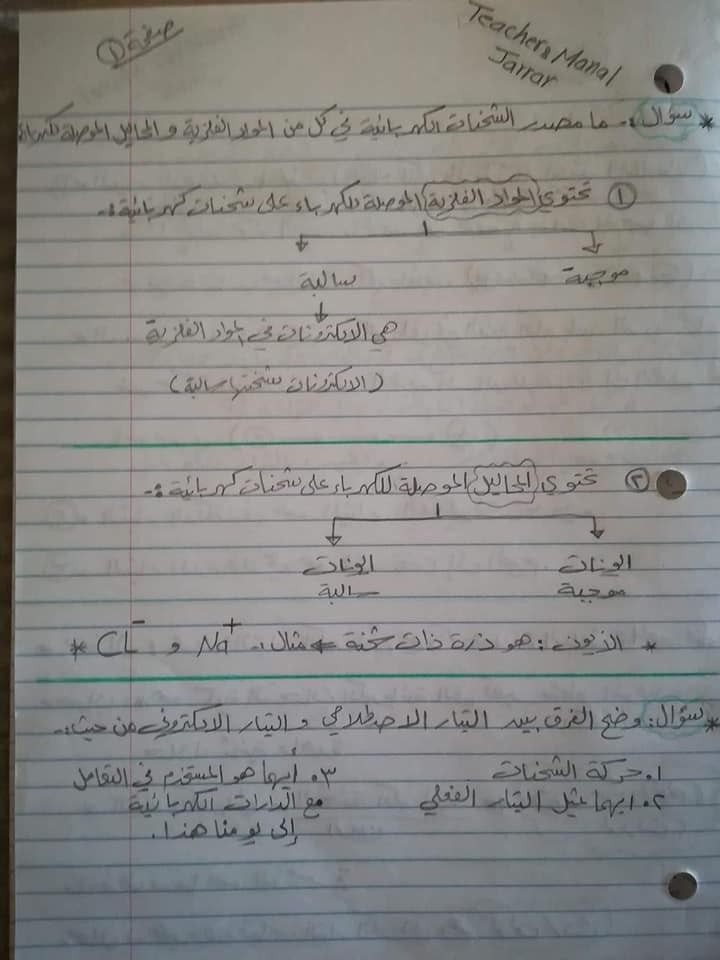 صفحة ①
Teacher: Manal
Jarrar
* سؤال :- ما مصدر الشحنات الكهربائية في كل من المواد الفلزية و المحاليل الموصلة للكهرباء
① تحتوي المواد الفلزية الموصلة للكهرباء على شحنات كهربائية :-
موجبة سالبة
هي الالكترونات في المواد الفلزية
(الالكترونات شحنتها سالبة)
② تحتوي المحاليل الموصلة للكهرباء على شحنات كهربائية :-
ايونات ايونات
موجبة سالبة
* الأيون : هو ذرة ذات شحنة ← مثال :- Na+ و CL- *
* سؤال : وضح الفرق بين التيار الاصطلاحي و التيار الالكتروني من حيث :-
١. حركة الشحنات
٢. ايهما يمثل التيار الفعلي
٣. أيهما هو المستخدم في التعامل
مع الدارات الكهربائية
إلى يومنا هذا.